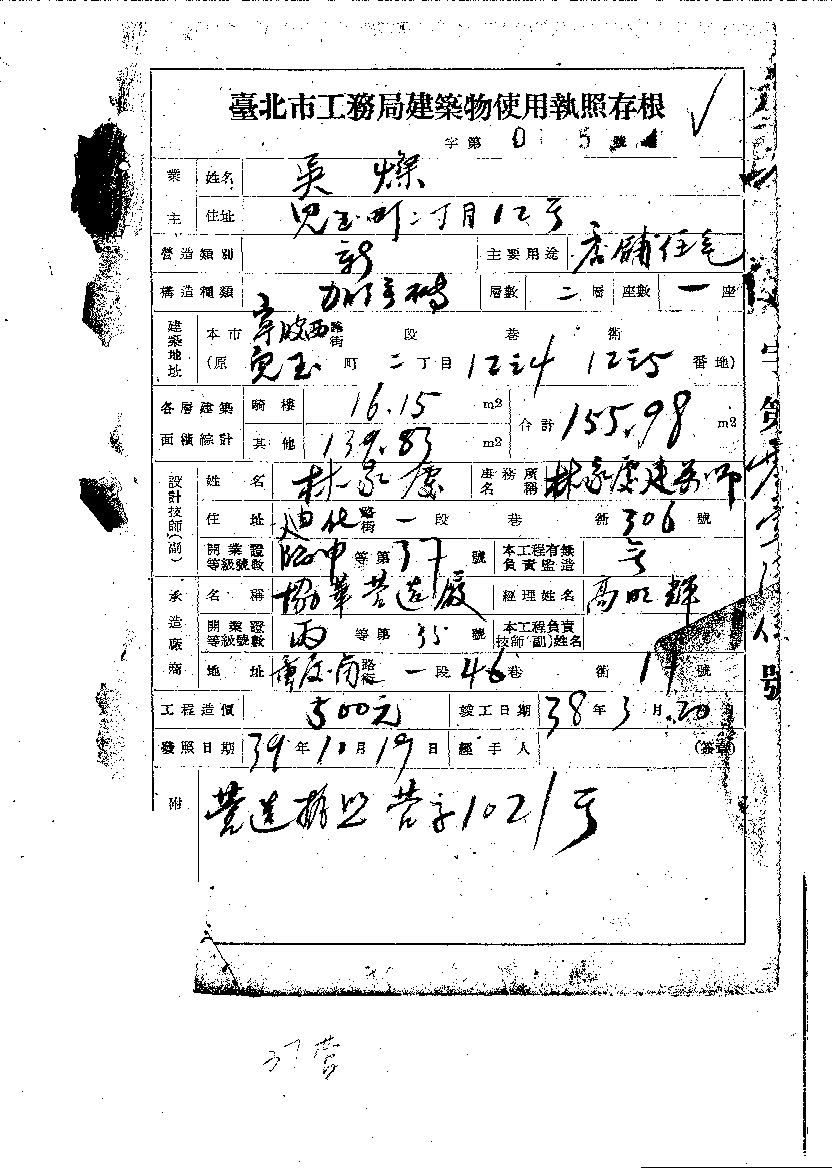 臺北市工務局建築物使用執照存根
字第 0 5 號
業主 姓名 吳燦
住址 兒玉町二丁目12号
營造類別 新 主要用途 店舖住宅
構造種類 加強磚 層數 二層 座數 一座
建築地址 本市 寧波西路街 段 巷 衖
(原 兒玉 町 二丁目 12之4 12之5 番地)
各層建築面積綜計 騎樓 16.15 m2 合計 155.98 m2
其他 139.83 m2
設計技師(副) 姓名 林家慶 事務所名稱 林家慶建築師
住址 迪化路街 一段 巷 衖 306 號
開業證等級號數 臨甲等第 37 號 本工程有無負責監造
承造廠商 名稱 協華营造廠 經理姓名 高明輝
開業證等級號數 丙等第 35 號 本工程負責技師(副)姓名
地址 重慶南路街 一段 46 巷 衖 11 號
工程造價 500元 竣工日期 38年3月20
發照日期 39年10月19日 經手人 (簽章)
附 营造執照 营字1021号
37营